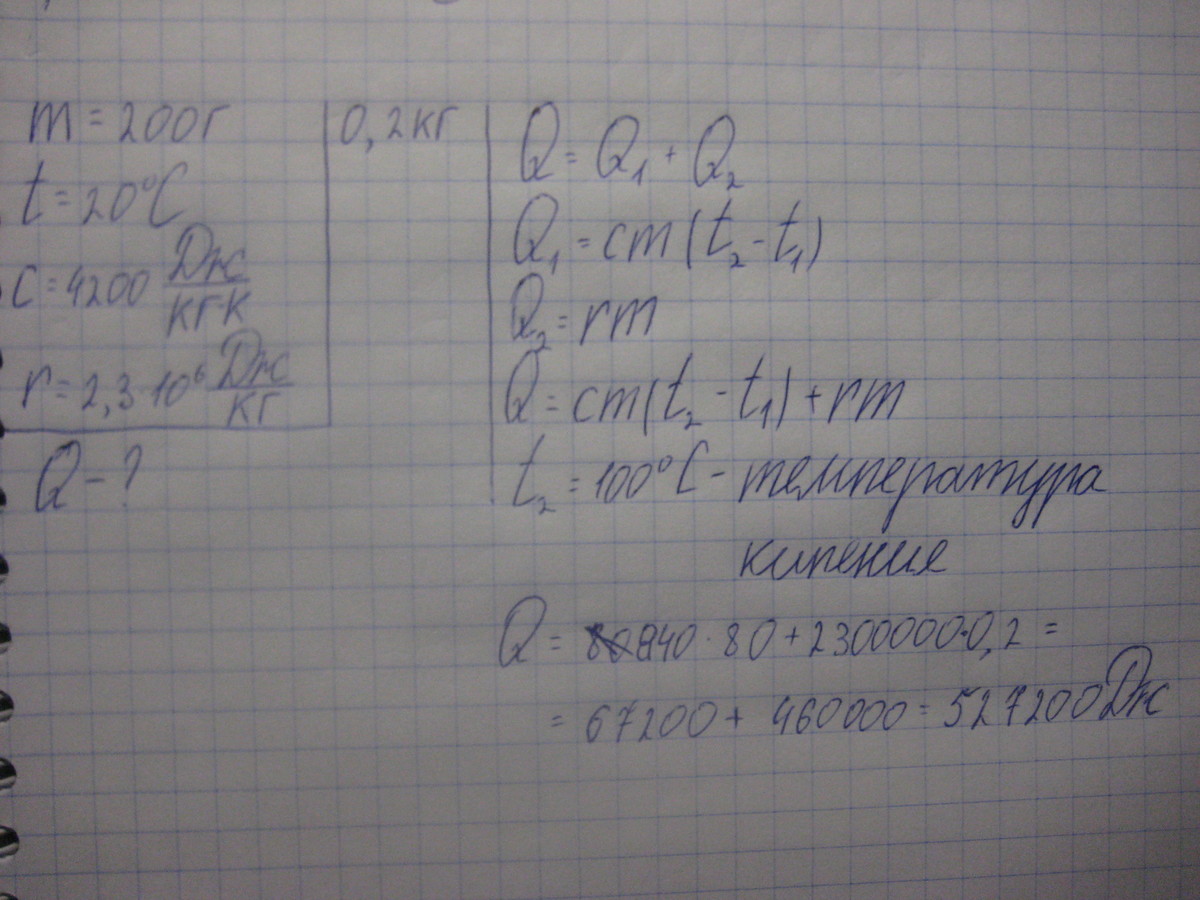 m = 200г
0,2кг
t = 20°C
c = 4200 Дж/кг·К
r = 2,3·10⁶ Дж/кг
Q - ?
Q = Q₁ + Q₂
Q₁ = cm(t₂ - t₁)
Q₂ = rm
Q = cm(t₂ - t₁) + rm
t₂ = 100°C - температура
кипения
Q = 840·80 + 2300000·0,2 =
= 67200 + 460000 = 527200 Дж